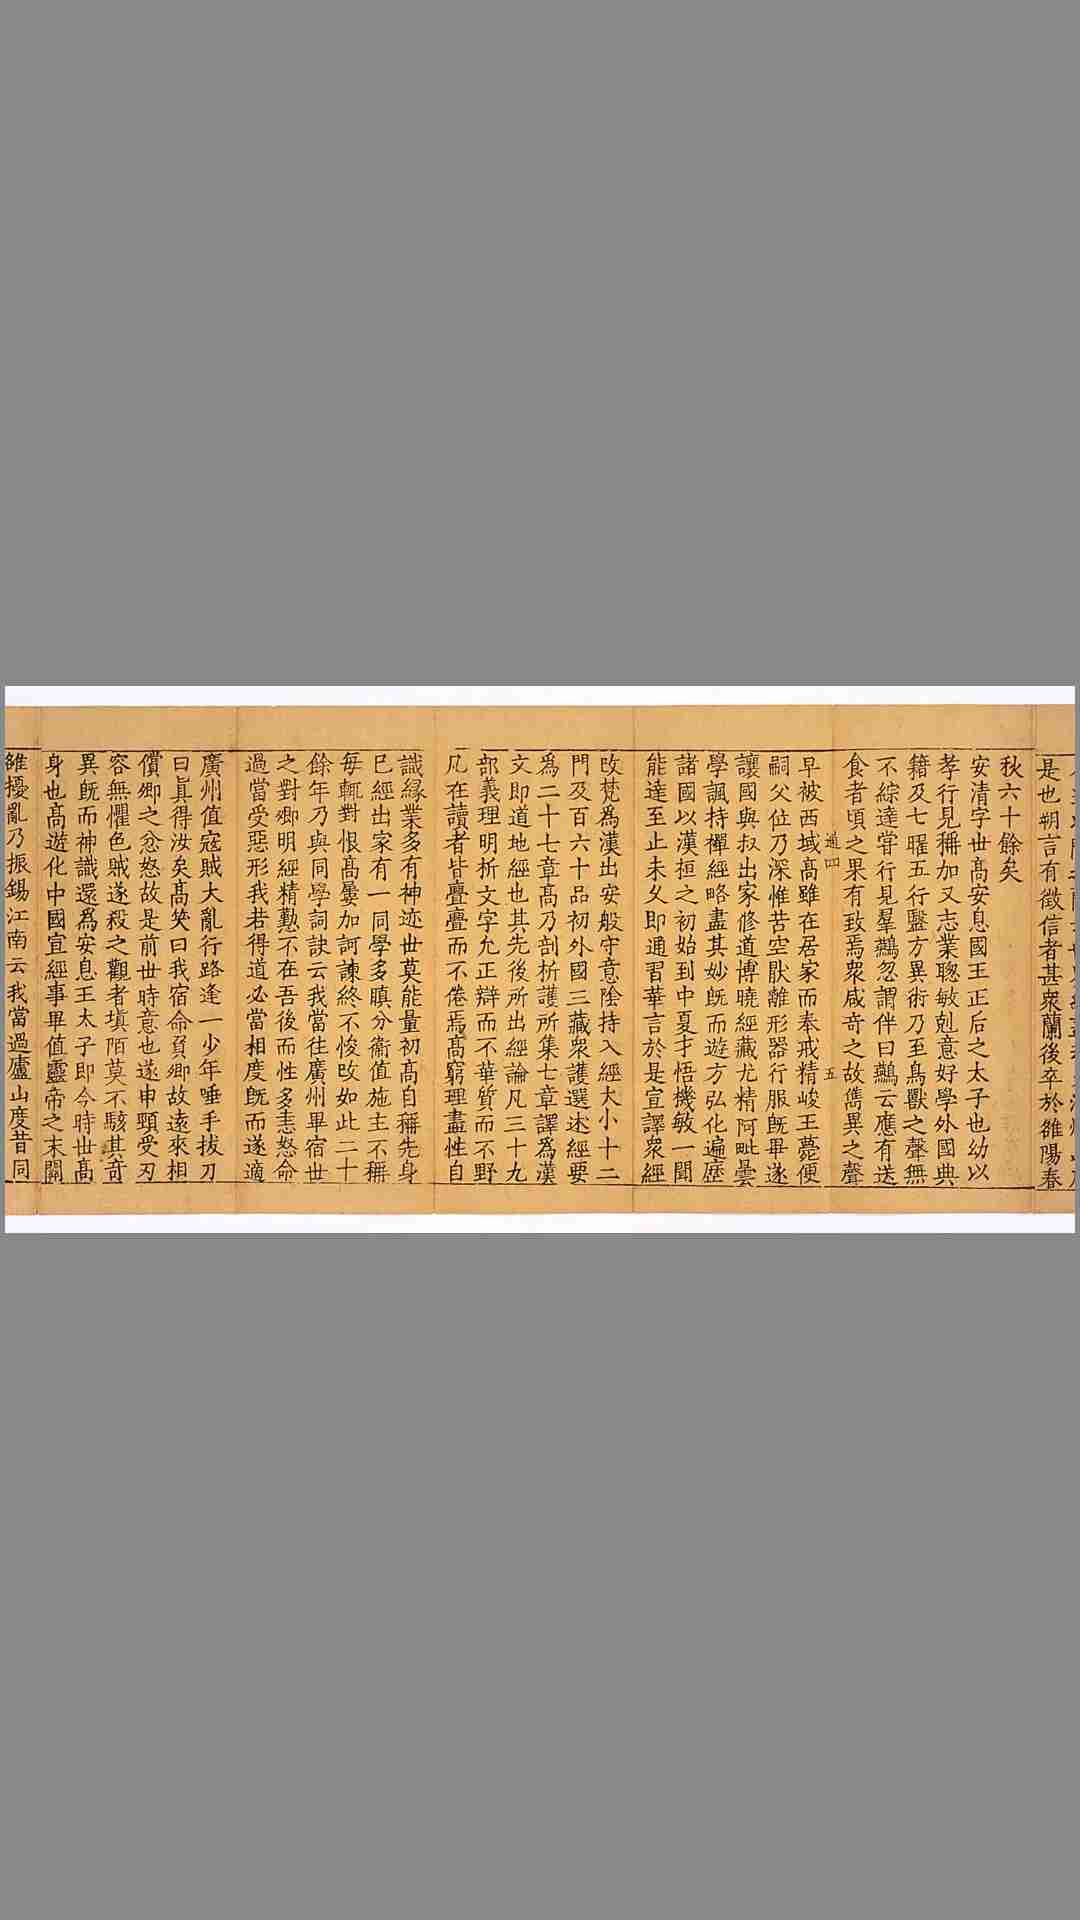 是也朔言有徵信者甚衆蘭後卒於雒陽春
秋六十餘矣
安清字世髙安息國王正后之太子也幼以
孝行見稱加又志業聦敏尅意好學外國典
籍及七曜五行醫方異術乃至鳥獸之聲無
不綜達甞行見羣鷰忽謂伴曰鷰云應有送
食者頃之果有致焉衆咸奇之故儁異之聲
通四 五
早被西域髙雖在居家而奉戒精峻王薨便
嗣父位乃深惟苦空猒離形器行服旣畢遂
讓國與叔出家修道博曉經藏尤精阿毗曇
學諷持禪經略盡其妙旣而遊方弘化遍歷
諸國以漢桓之初始到中夏才悟機敏一聞
能達至止未夂即通習華言於是宣譯衆經
改梵爲漢出安般守意陰持入經大小十二
門及百六十品初外國三藏衆護選述經要
爲二十七章髙乃剖析護所集七章譯爲漢
文即道地經也其先後所出經論凡三十九
部義理明析文字允正辯而不華質而不野
凡在讀者皆亹亹而不倦焉髙窮理盡性自
識縁業多有神迹世莫能量初髙自稱先身
已經出家有一同學多瞋分衞值施主不稱
每輒對恨髙屢加訶諫終不悛改如此二十
餘年乃與同學詞訣云我當往廣州畢宿世
之對卿明經精懃不在吾後而性多恚怒命
過當受惡形我若得道必當相度旣而遂適
廣州值寇賊大亂行路逢一少年唾手拔刀
曰眞得汝矣髙笑曰我宿命負卿故遠來相
償卿之忿怒故是前世時意也遂申頸受刃
容無懼色賊遂殺之觀者塡陌莫不駭其奇
異旣而神識還爲安息王太子即今時世髙
身也髙遊化中國宣經事畢值靈帝之末關
雒擾亂乃振錫江南云我當過廬山度昔同